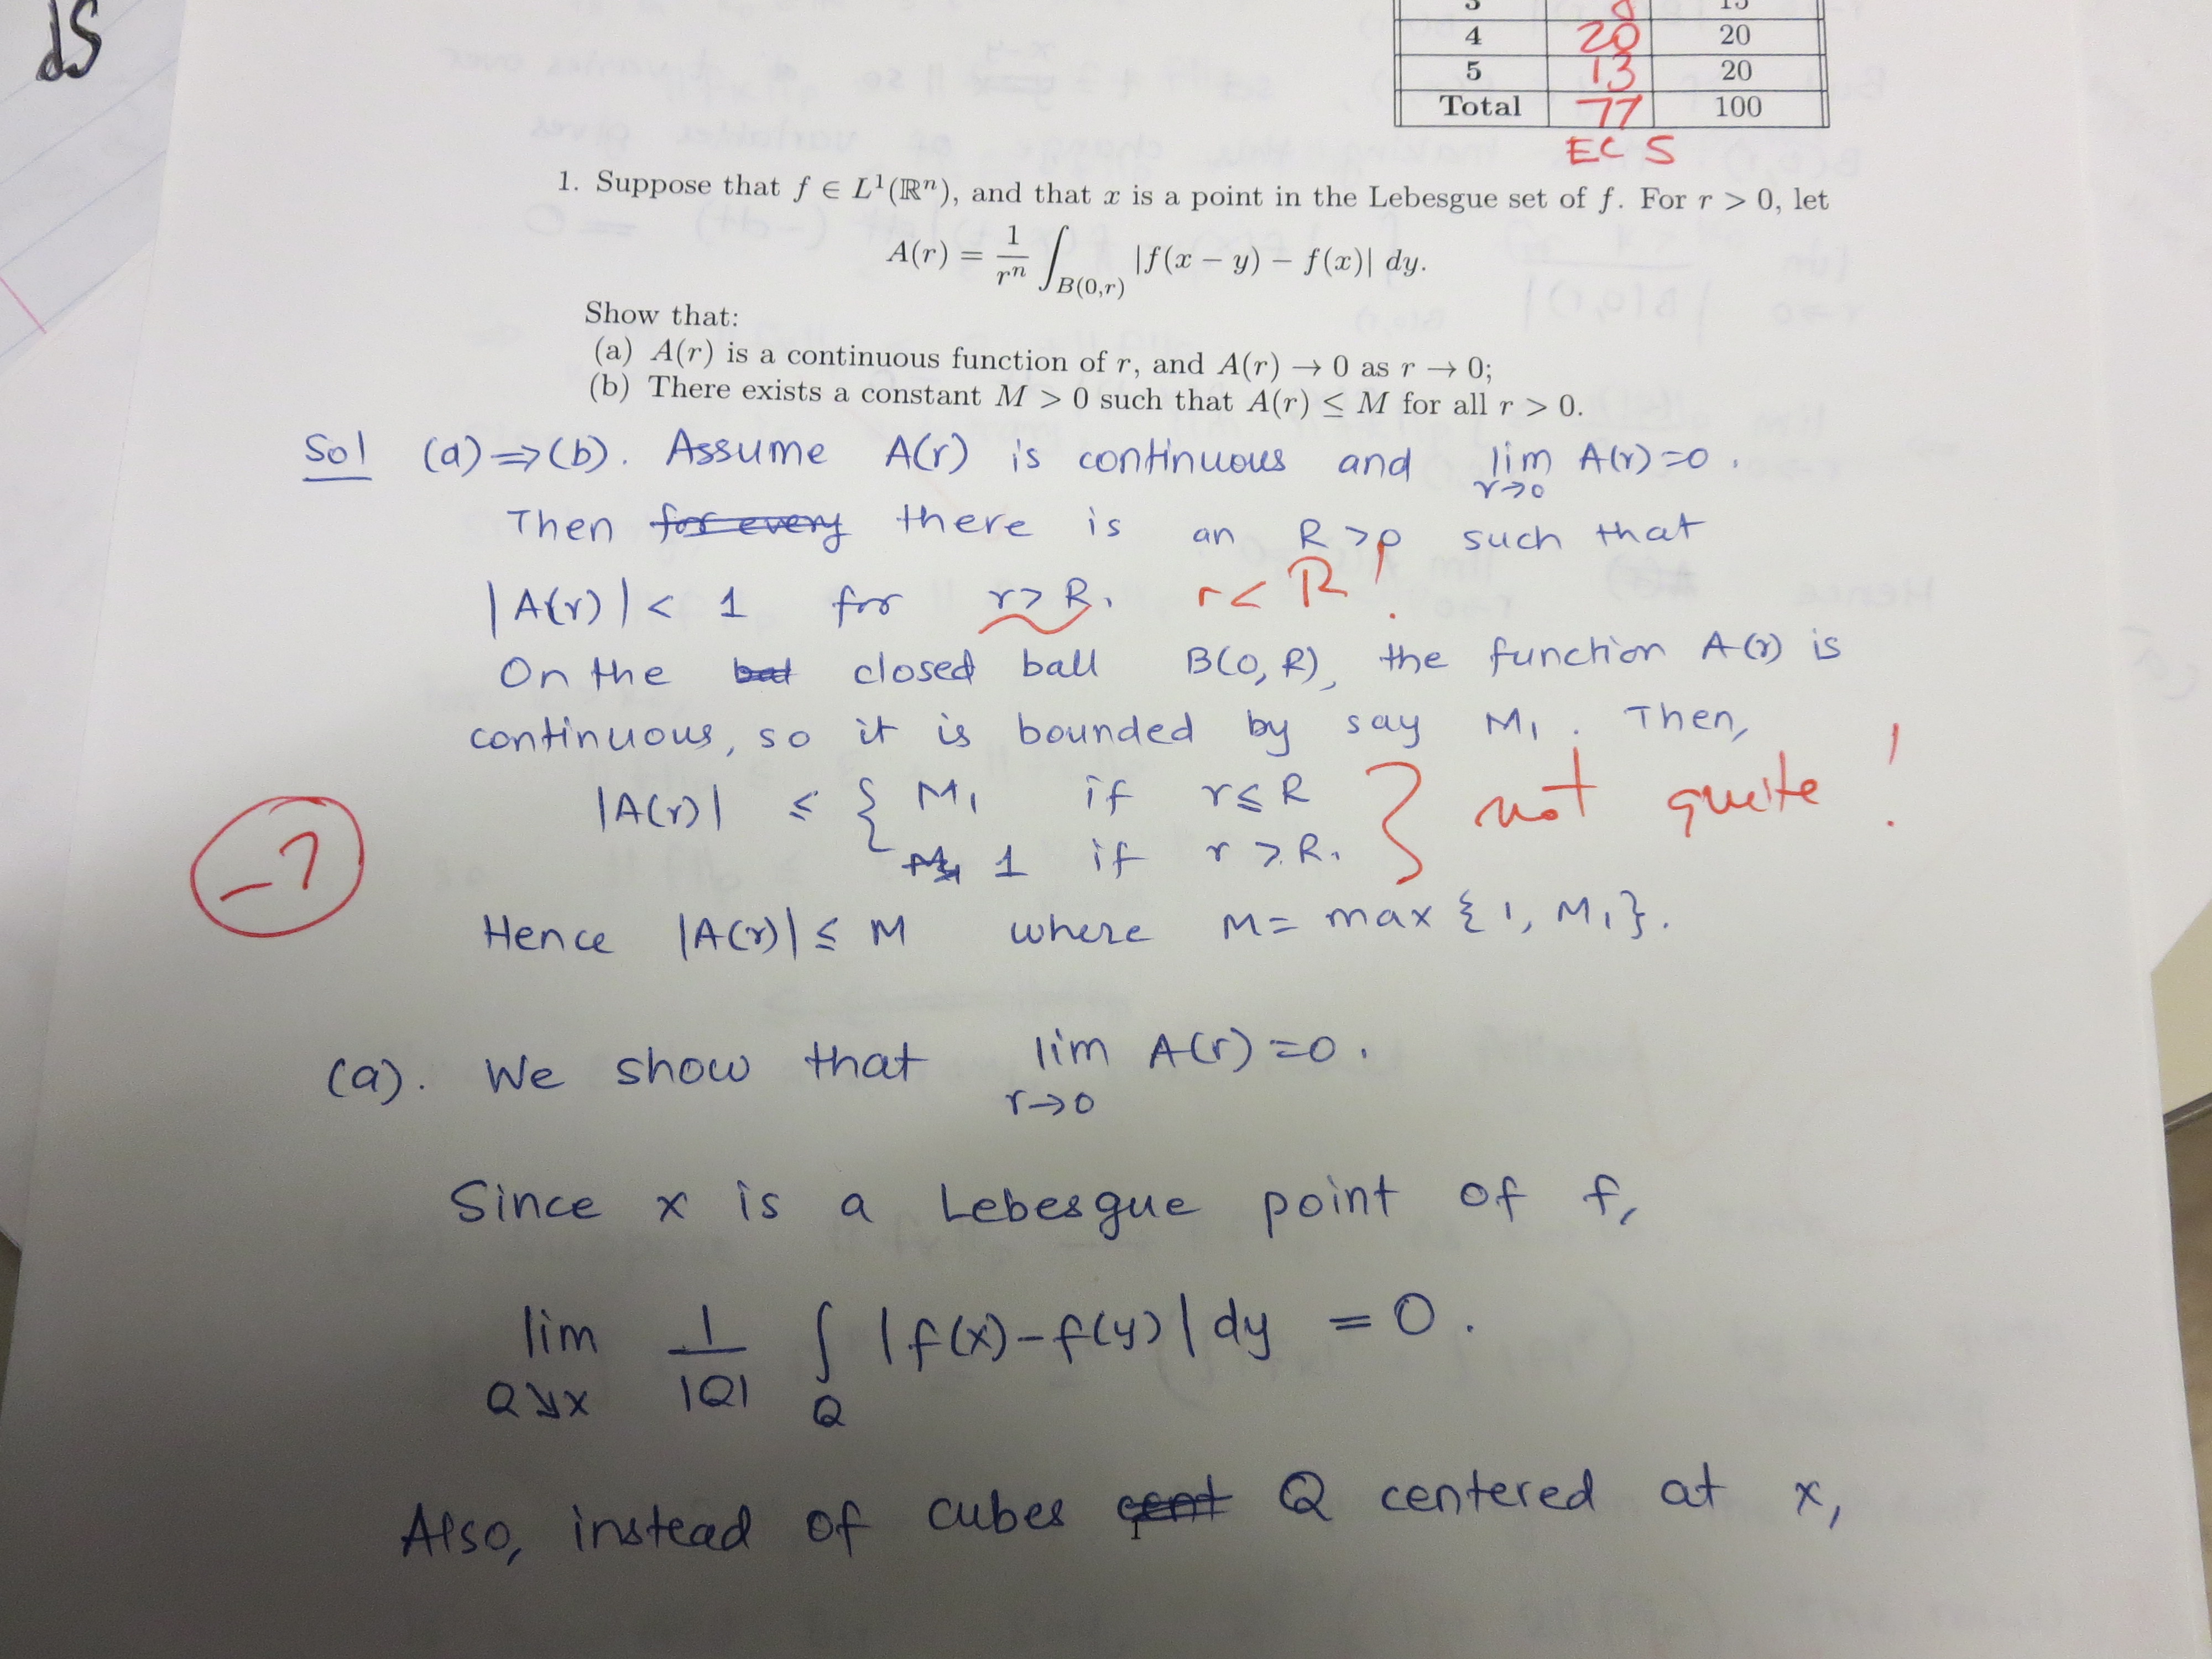 dS
4 20 20
5 13 20
Total 77 100
EC 5
1. Suppose that f ∈ L¹(ℝⁿ), and that x is a point in the Lebesgue set of f. For r > 0, let
A(r) = 1/rⁿ ∫_{B(0,r)} |f(x − y) − f(x)| dy.
Show that:
(a) A(r) is a continuous function of r, and A(r) → 0 as r → 0;
(b) There exists a constant M > 0 such that A(r) ≤ M for all r > 0.
Sol (a)⇒(b). Assume A(r) is continuous and lim_{r→0} A(r)=0.
Then for every there is an R>0 such that
|A(r)| < 1 for r>R. r < R.
On the bat closed ball B(0,R), the function A(r) is
continuous, so it is bounded by say M₁. Then,
|A(r)| ≤ { M₁ if r≤R
M₁ 1 if r>R. } not quite!
Hence |A(r)| ≤ M where M = max {1, M₁}.
-7
(a). We show that lim_{r→0} A(r)=0.
Since x is a Lebesgue point of f,
lim_{Q↘x} 1/|Q| ∫_Q |f(x)-f(y)| dy = 0.
Also, instead of cubes cent Q centered at x,